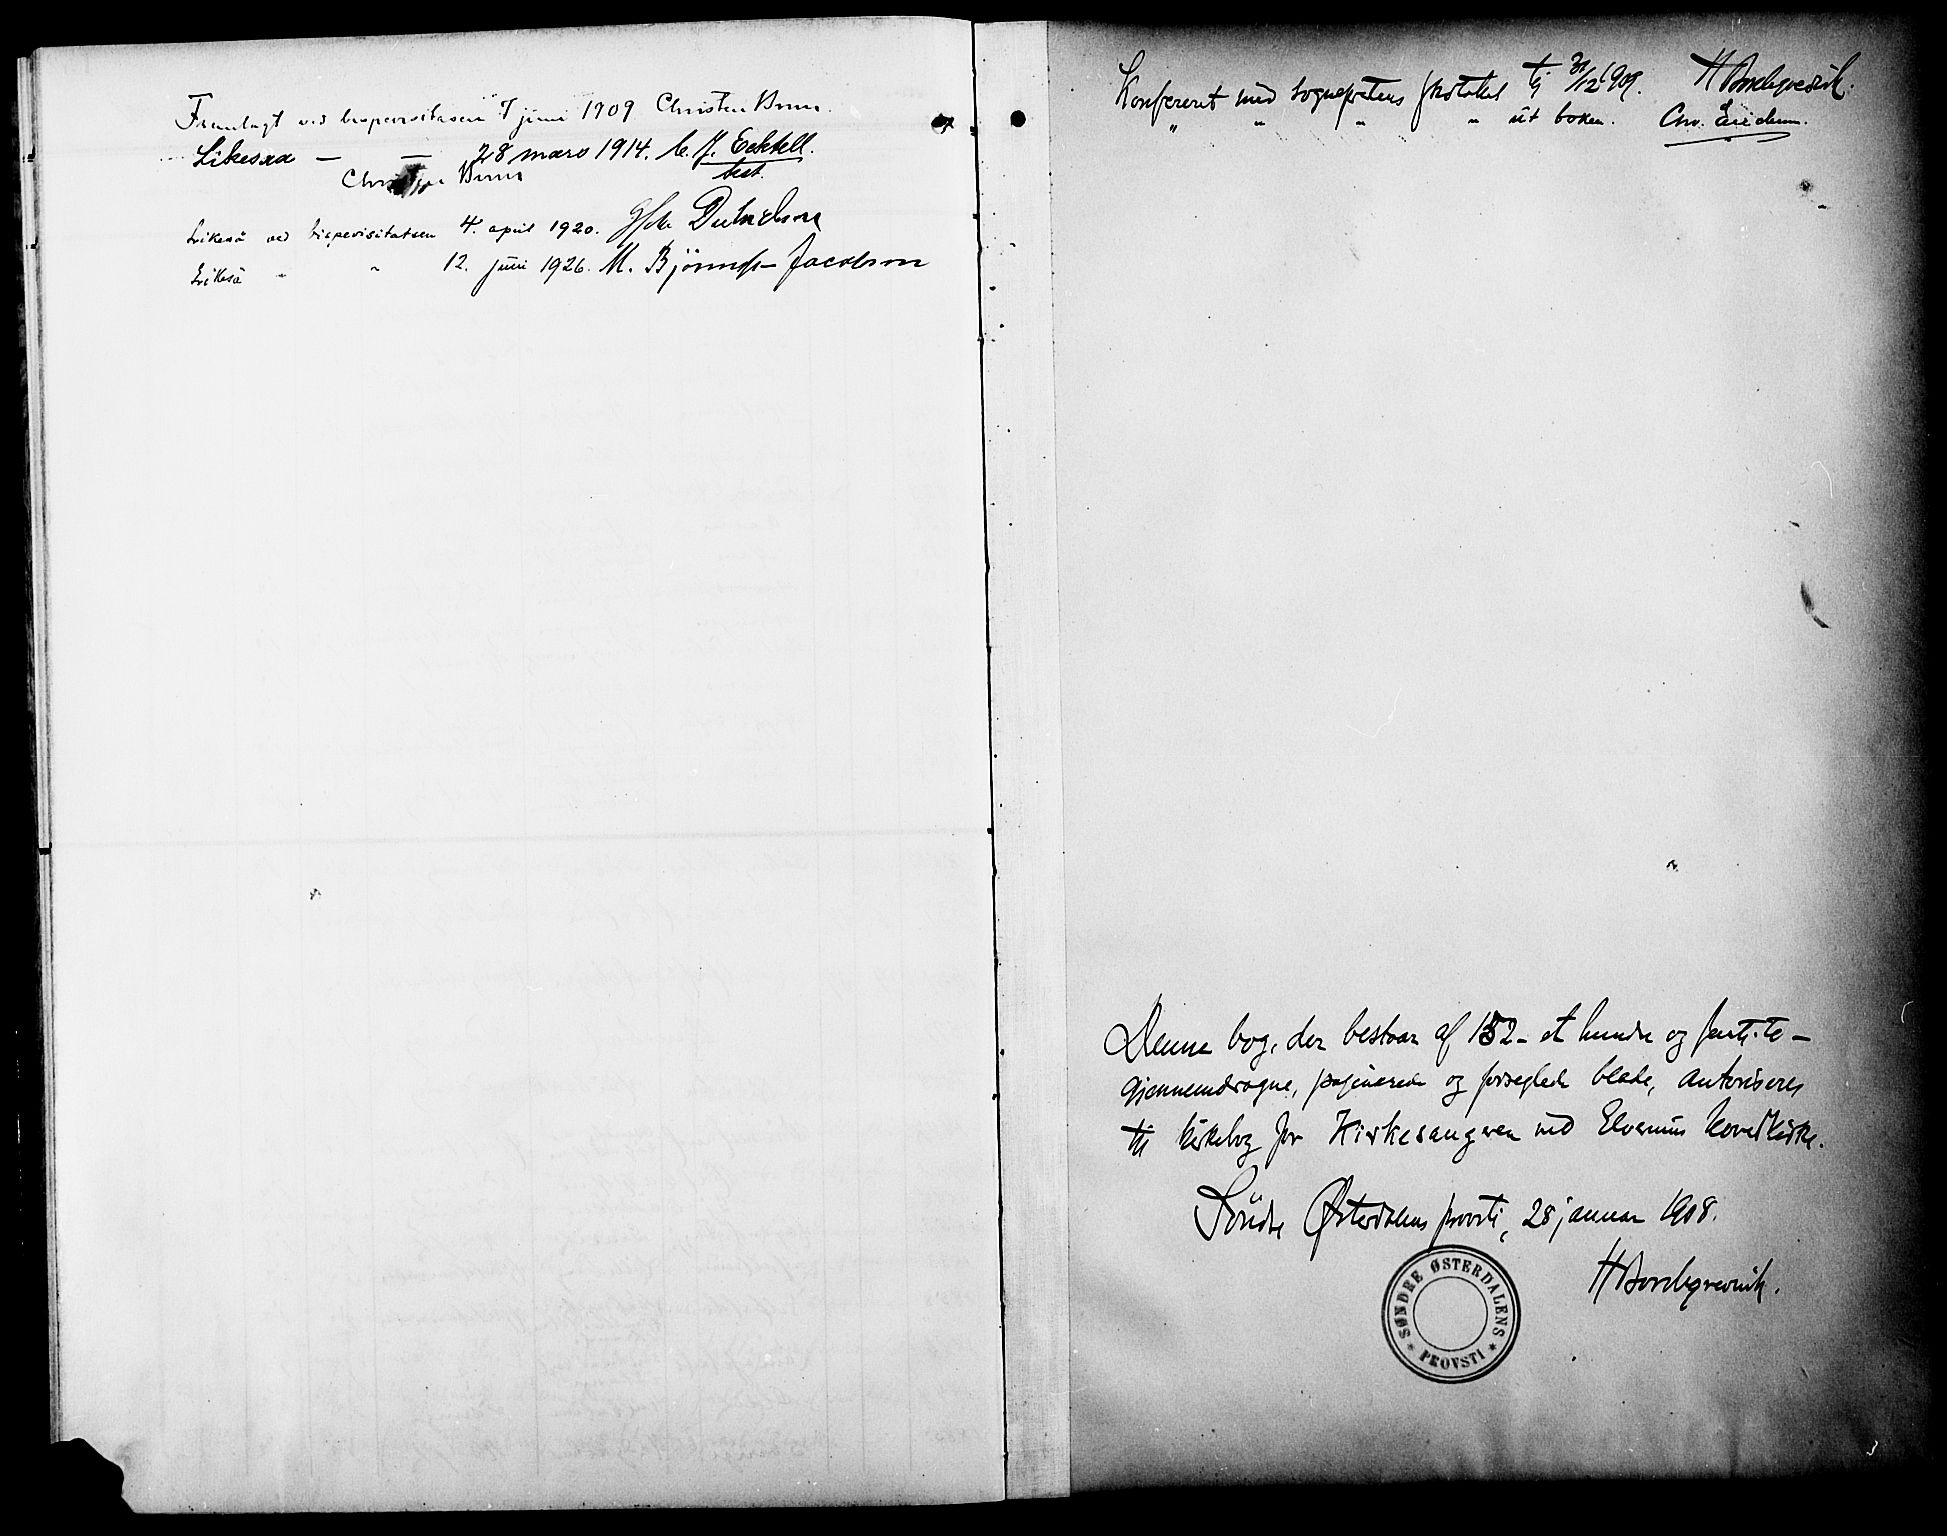 Fremlagt ved bispevisitasen 7 juni 1909 Christen Brun.
Likesaa — — 28 mars 1914. C. J.
Christen Brun test.
Likeså ved bispevisitatsen 4. april 1920.
Likeså " " 12. juni 1926. M. Bjønness-Jacobsen
Konfereret med sogneprestens protokol til 31/12 1909. H Borchgrevink.
" " " " ut boken. Chr.
Denne bog, der bestaar af 152 - et hundre og femti-to -
gjennemdragne, paginerede og forseglede blade, autoriseres
til kirkebog for Kirkesangeren ved Elverums hovedkirke.
Søndre Østerdalens provsti, 28 januar 1908.
H Borchgrevink.
SØNDRE ØSTERDALENS
* PROVSTI *
3